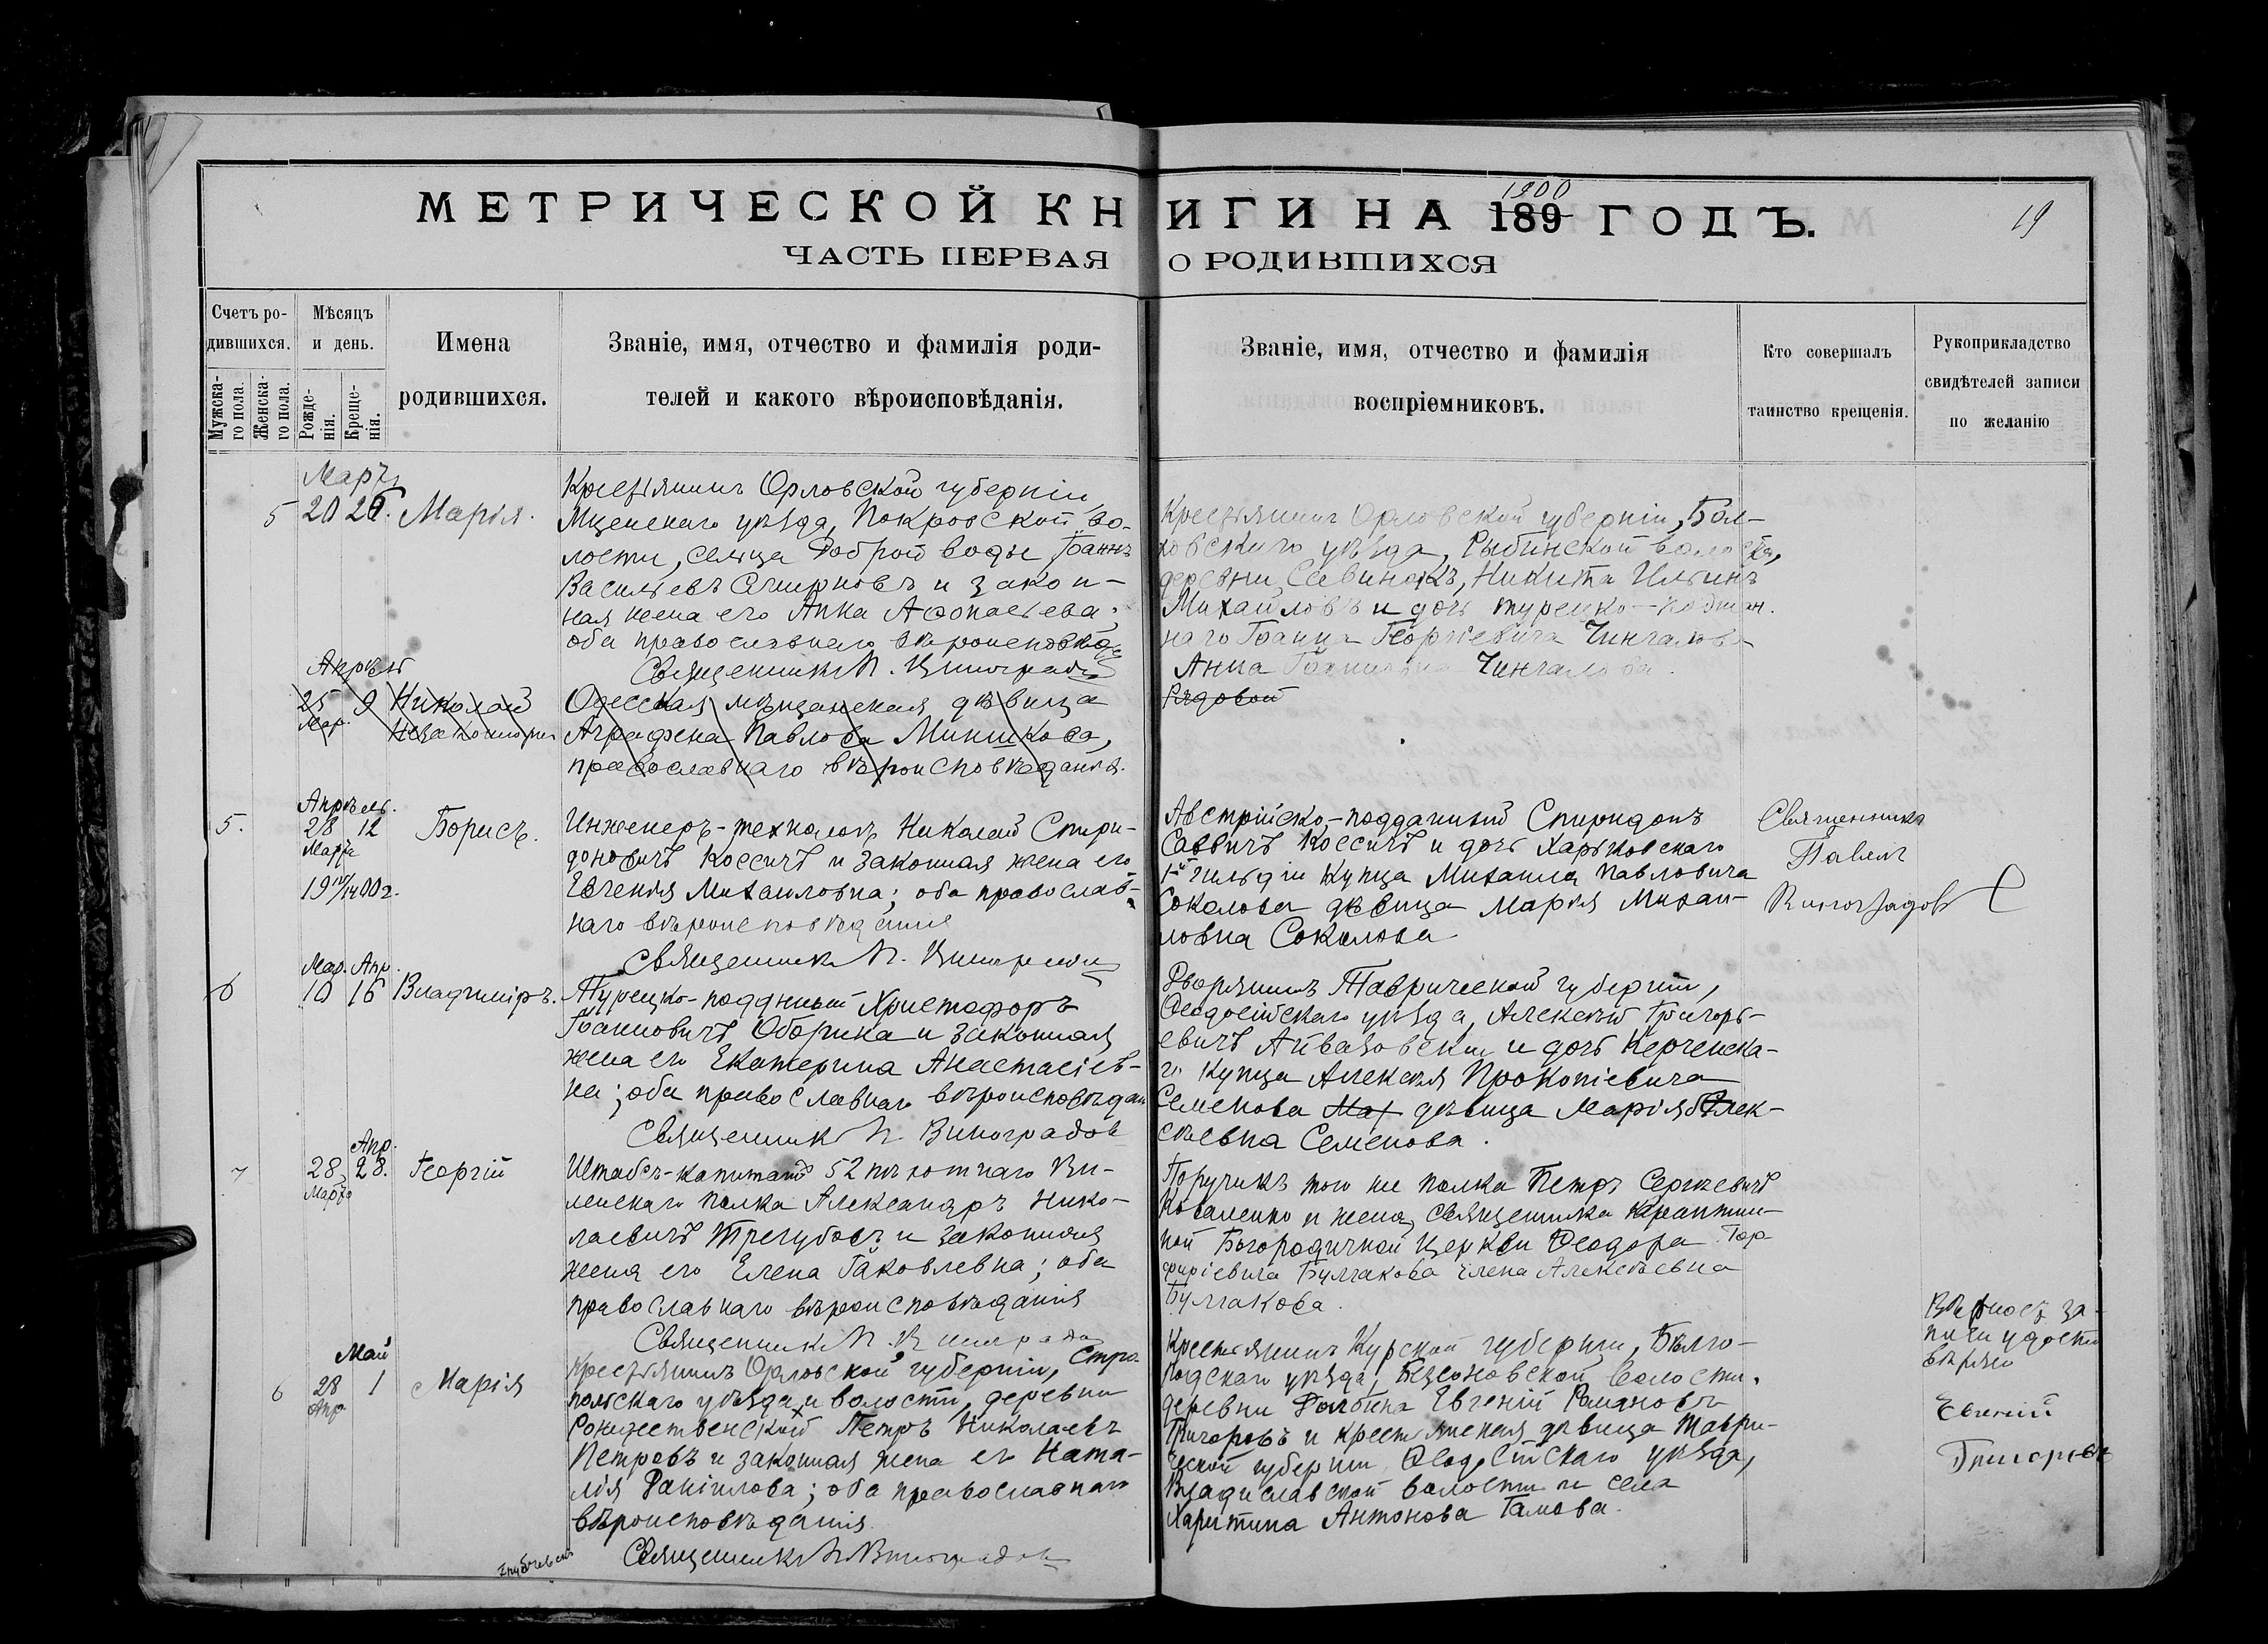 МЕТРИЧЕСКОЙ КНИГИ НА 189 ГОДЪ.
1900
19
ЧАСТЬ ПЕРВАЯ О РОДИВШИХСЯ
Счетъ ро-
дившихся.
Мужска-
го пола.
Женска-
го пола.
Мѣсяцъ
и день.
Рожде-
нія.
Креще-
нія.
Имена
родившихся.
Званіе, имя, отчество и фамилія роди-
телей и какого вѣроисповѣданія.
Званіе, имя, отчество и фамилія
воспріемниковъ.
Кто совершалъ
таинство крещенія.
Рукоприкладство
свидѣтелей записи
по желанію
Мартъ
5 20 26. Марія.
Крестьянинъ Орловской губерніи,
Мценскаго уѣзда, Покровской во-
лости, сельца Доброй воды, Іоаннъ
Васильевъ Смирновъ и закон-
ная жена его Анна Афонасьева,
оба православнаго вѣроисповѣда
Священникъ П. Виноградовъ
Крестьянинъ Орловской губерніи, Бол-
ховскаго уѣзда, Рыбинской волости,
деревни Савинокъ, Никита Ильинъ
Михайловъ и дочь турецко-поддан.
наго Іоанна Георгіевича Чинчалова
Анна Іоанновна Чинчалова.
Апрѣль
25 9 Николай
Мар. Незаконнорож
Одесская мѣщанская дѣвица
Аграфена Павлова Миникова,
православнаго вѣроисповѣданія.
Рядовой
Апрѣль.
5. 28 12 Борисъ.
Марта
1900 г.
Инженеръ-технологъ Николай Спири-
доновичъ Коссичъ и законная жена его
Евгенія Михаиловна; оба православ-
наго вѣроисповѣданія
Священникъ П. Виноградовъ
Австрійско-подданный Спиридонъ
Саввичъ Коссичъ и дочь Харьковскаго
1-й гильдіи купца Михаила Павловича
Соколова дѣвица Марія Михаи-
ловна Соколова
Священникъ
Павелъ
Виноградовъ
Мар. Апр.
6 10 16 Владиміръ.
Турецко-подданный Христофоръ
Іоанновичъ Оборика и законная
жена его Екатерина Анастасіев-
на; оба православнаго вѣроисповѣдан
Священникъ П. Виноградовъ
Дворянинъ Таврической губерніи,
Ѳеодосійскаго уѣзда, Алексѣй Григорь-
евичъ Айвазовскій и дочь Керченска-
го купца Алексѣя Прокопіевича
Семенова Мар дѣвица Марія Алек-
сѣевна Семенова.
Апр.
7 28 28. Георгій
Марта
Штабсъ-капитанъ 52 пѣхотнаго Ви-
ленскаго полка Александръ Нико-
лаевичъ Трегубовъ и законная
жена его Елена Іаковлевна; оба
православнаго вѣроисповѣданія
Священникъ П. Виноградовъ
Поручикъ того же полка Петръ Сергѣевичъ
Коваленко и жена священника Карантин-
ной Богородичной церкви Ѳеодора Пор-
фиріевича Булгакова Елена Алексѣевна
Булгакова.
Май
6 28 1 Марія
Апр
Крестьянинъ Орловской губерніи,
польскаго уѣзда и волости, деревни
Рожественской Петръ Николаевъ
Петровъ и законная жена его Ната-
лія Даніилова; оба православнаго
вѣроисповѣданія.
Священникъ П Виноградовъ
Крестьянинъ Курской губерніи, Бѣлго-
родскаго уѣзда, волости,
деревни Евгеній Романовъ
Григорьевъ и крестьянская дѣвица Таври-
ческой губерніи Ѳеодосійскаго уѣзда,
Владиславской волости и села
Харитина Антонова Гамова.
Вѣрность за-
писи удосто
вѣряю
Евгеній
Григорьевъ